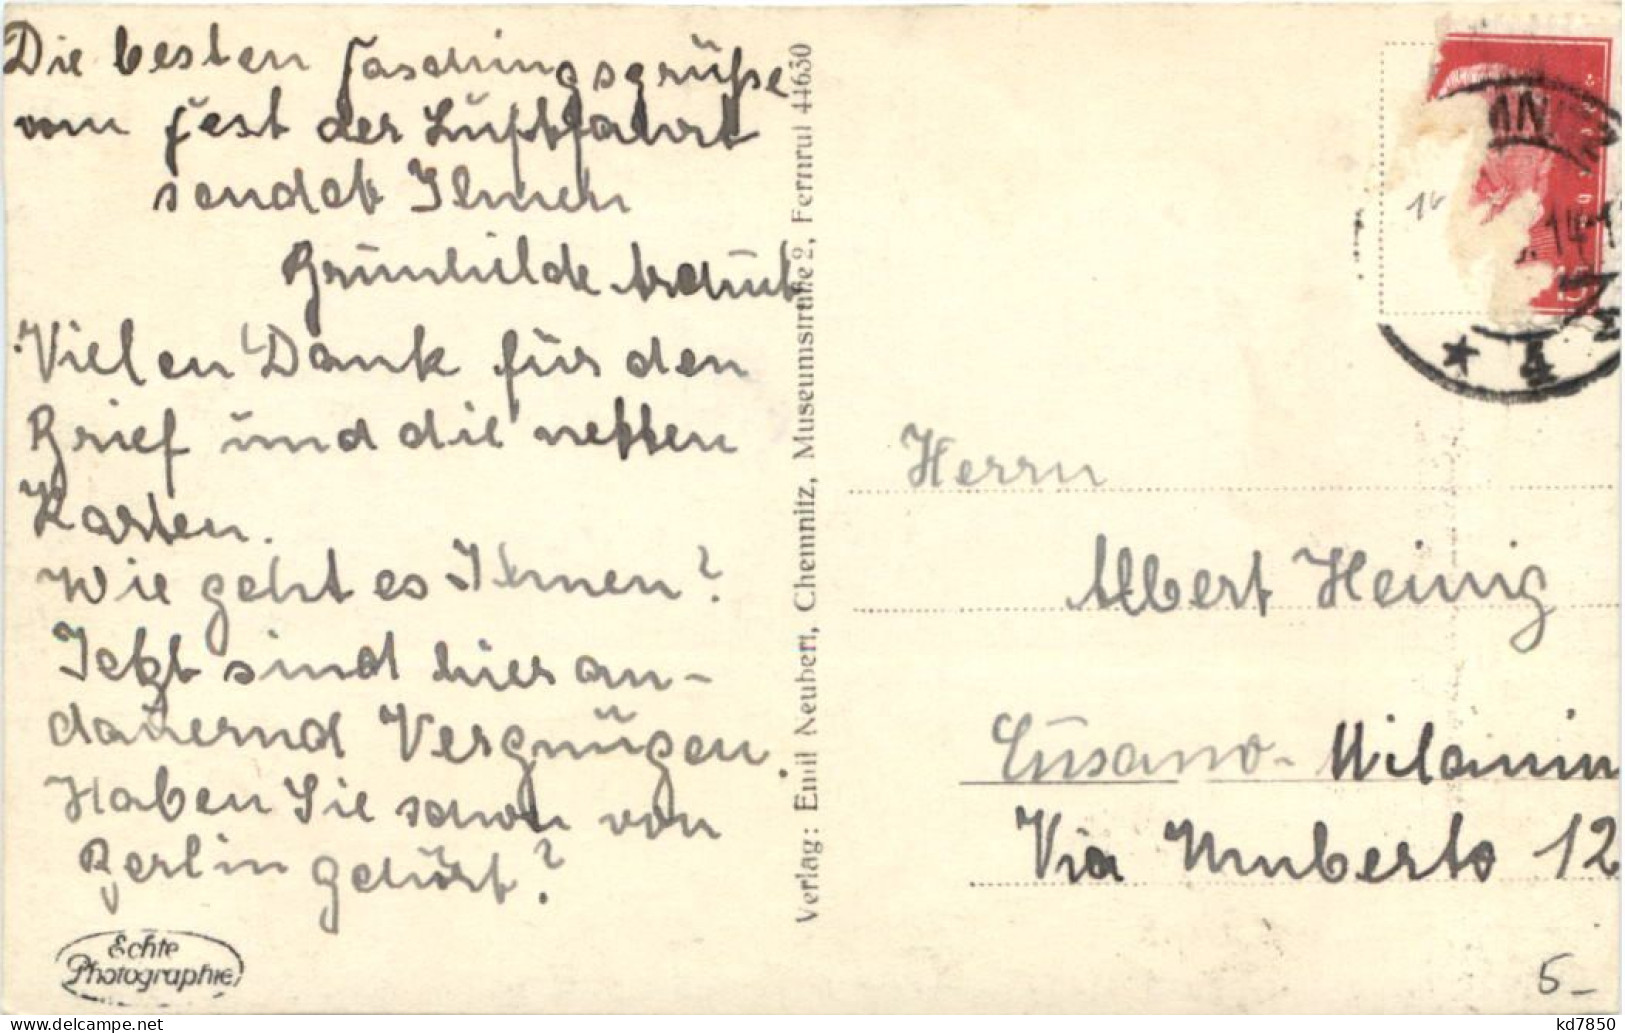 Die besten Faschingsgrüße
vom Fest der Luftfahrt
sendet Ihnen
Brünhilde
Vielen Dank für den
Brief und die netten
Karten.
Wie geht es Ihnen?
Jetzt sind hier an-
dauernd Vergnügen.
Haben Sie schon von
Berlin gehört?
Echte
Photographie
Verlag: Emil Neubert, Chemnitz, Museumstraße 2, Fernruf 44630
16
14-1
15
* 4
Herrn
Albert Heinig
Cusano-Milanin
Via Umberto 12
5-
kd7850